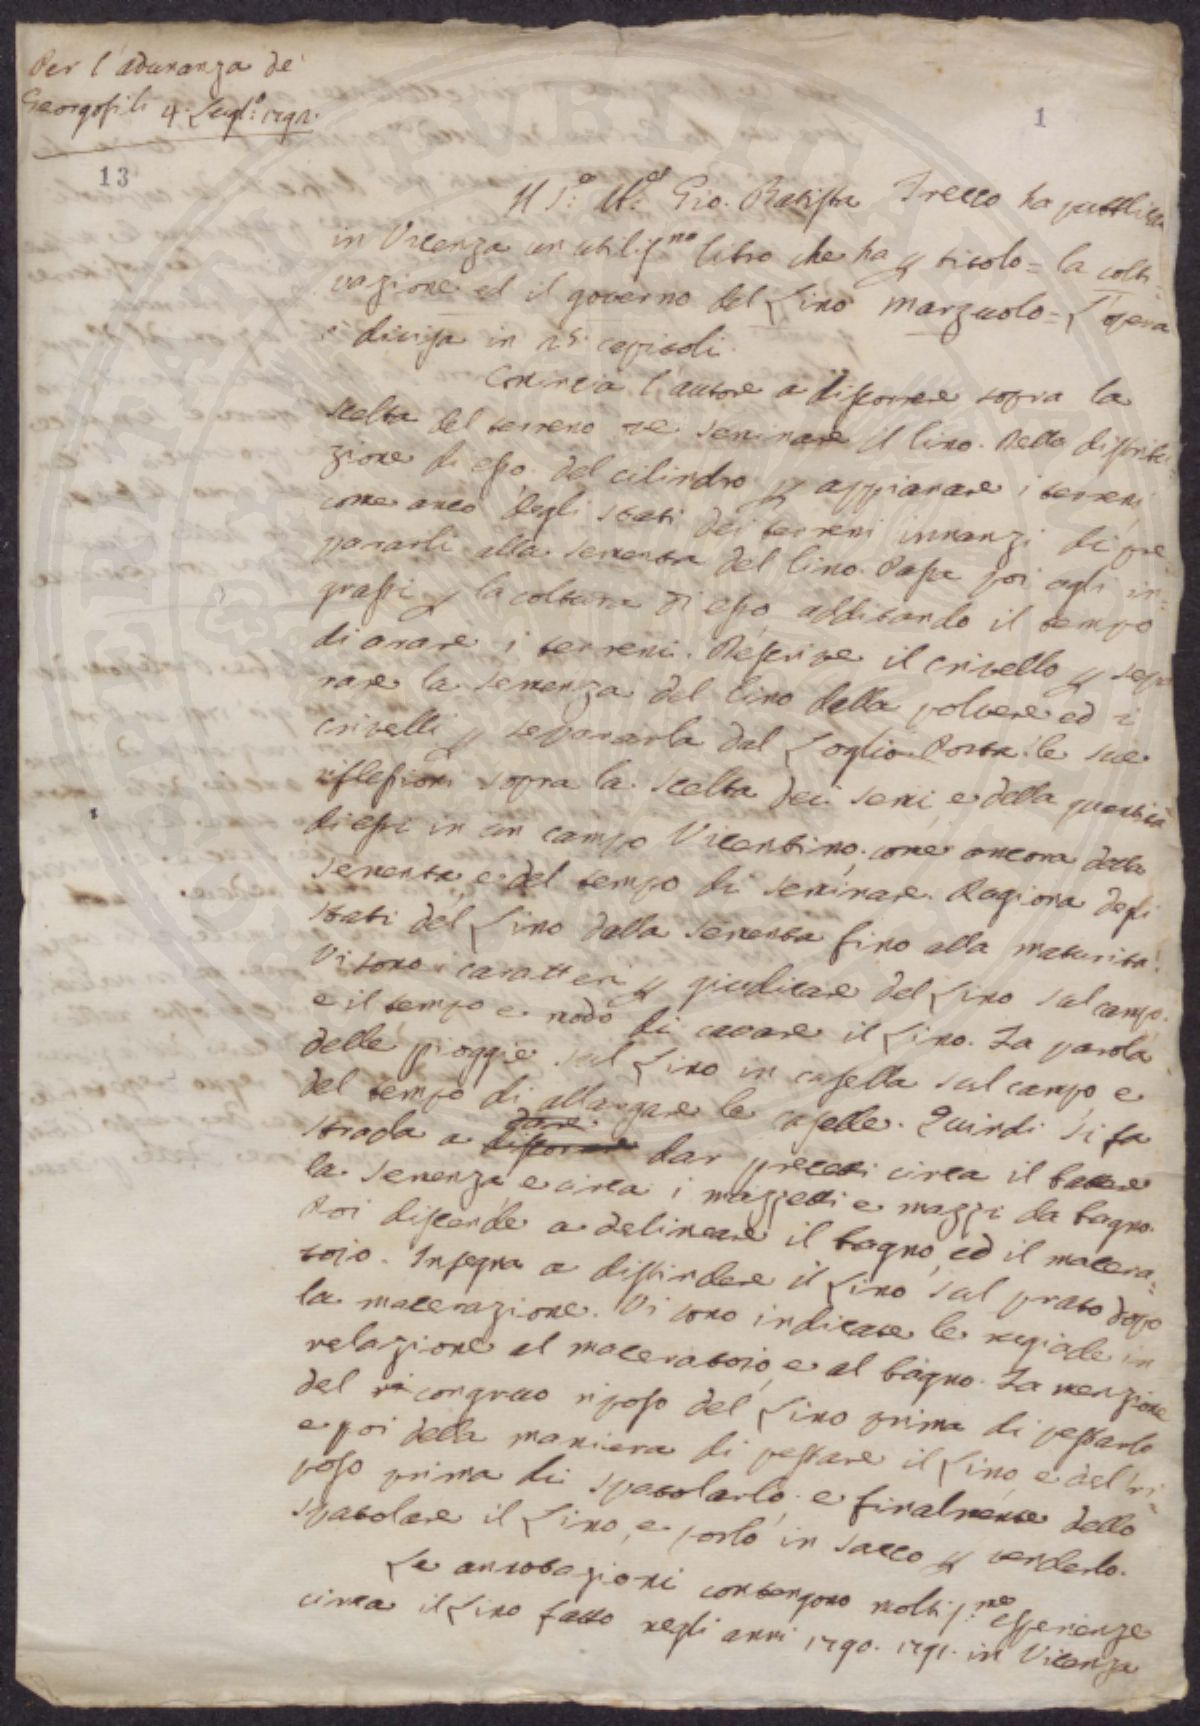 Per l'adunanza de'
Georgofili 4. Lugl:o 1792.
1
13
Il S:e N:e Gio. Batista Trecco ha pubblica
in Vicenza un utiliss:mo libro che ha p titolo = la colti-
vazione ed il governo del Lino marzuolo = L'opera
è divisa in 25. capitoli.
Comincia l'autore a discorrere sopra la
scelta del terreno pe seminare il lino. Della distribu
zione di esso. del cilindro p appianare i terreni,
come anco degli stati dei terreni innanzi di pre
pararli alla sementa del lino. Passa poi agli in=
grassi p la coltura di esso additando il tempo
di arare i terreni. Descrive il crivello p sepa
rare la semenza del lino dalla polvere ed i
crivelli p separarla dal Loglio. Porta le sue
riflessioni sopra la scelta dei semi, e della quantità
di essi in un campo Vicentino. come ancora della
sementa, e del tempo di seminare. Ragiona degli
stati del Lino dalla sementa fino alla maturità.
Vi sono i caratteri p giudicare del Lino sul campo.
e il tempo e modo di cavare il Lino. Fa parola
delle pioggie sul Lino in casella sul campo e
del tempo di allargare le caselle. Quindi si fa
strada a dar precetti circa il battere
la semenza, e circa i mazzetti e mazzi da bagno.
Poi discende a delineare il bagno, ed il macera=
toio. Insegna a distendere il Lino sul prato dopo
la macerazione. Vi sono indicate le regiole in
relazione al maceratoio, e al bagno. Fa menzione
del congruo riposo del Lino prima di pestarlo
e poi della maniera di pestare il Lino, e del ri=
poso prima di spatolarlo. e finalmente dello
spatolare il Lino, e porlo in sacco p venderlo.
Le annotazioni contengono moltiss:me esperienze
circa il Lino fatto negli anni 1790. 1791. in Vicenza